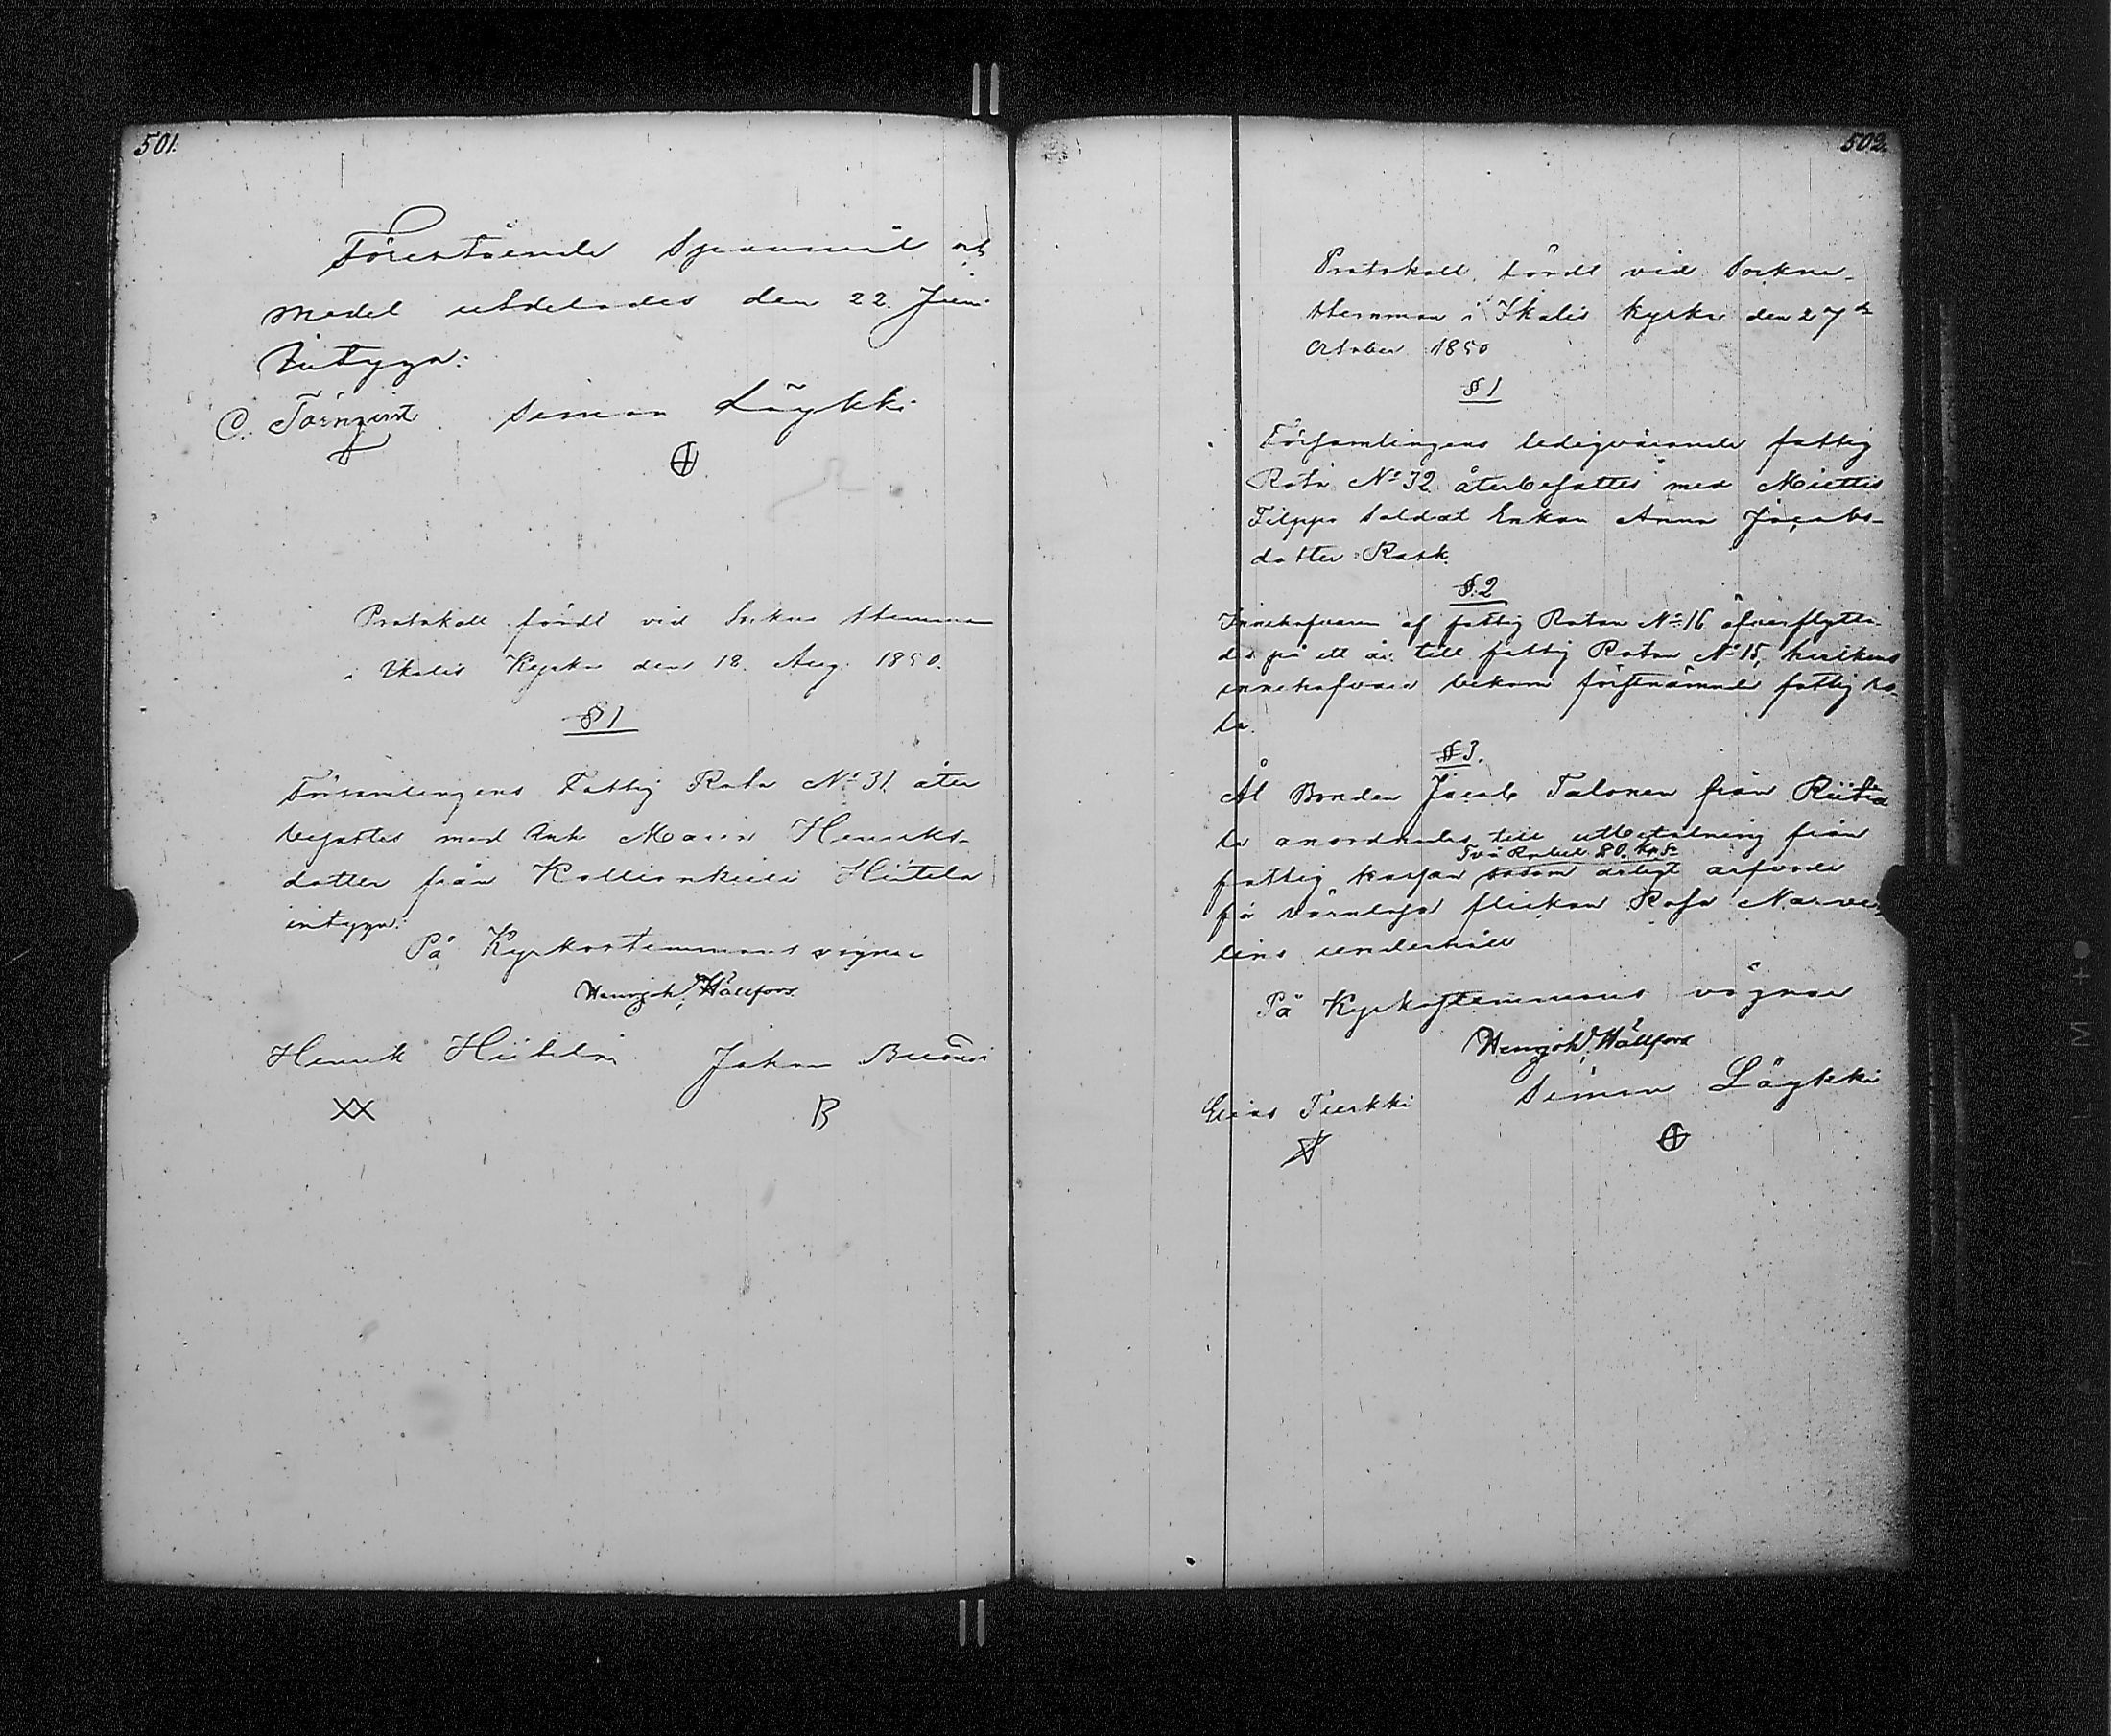 501.
Förestående Spanmål och
medel utdelades den 22. Juni
Intygar:
C. Törnqvist Simon Löykki
Protokoll fördt vid Sockne Stemman
i Ikalis Kyrka den 18. Aug. 1850.
§ 1
Församlingens Fattig Rota No 31 åter
besattes med Enk. Maria Henriks-
dotter från Kallionkieli Hiitelä
intygar:
På Kyrkostemmans vägnar
Henr. Joh. Hällfors
Henrik Hiitelä Johan
XX B
502.
Protokoll, fördt vid Sockne-
Stemman i Ikalis Kyrka den 27de
October 1850
§ 1
Församlingens ledigvarande fattig
Rota No 32 återbesattes med Miettis
Filppo Soldat Enkan Anna Jacobs-
dotter Rask.
§. 2
Innehafvaren af fattig Rotan No 16 öfverflytta-
des på ett år till fattig Rotan No 15, hvilkens
innehafvare bekom förstnämnde fattig Ro-
ta.
§ 3.
Åt Bonden Jacob Talonen från Riita
la anordnades till utbetalning från
Två Rubel 80. Kop. Sr
fattig kassan såsom årligt arfvode
för värnlösa flickan Rosa Narve-
lins underhåll
På Kyrkostemmans vägnar
Henr. Joh. Hällfors
Elias Tierkki Simon Löykki